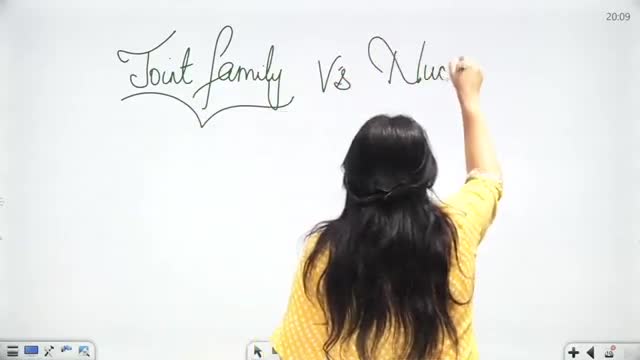 20:09
Joint family Vs Nuc